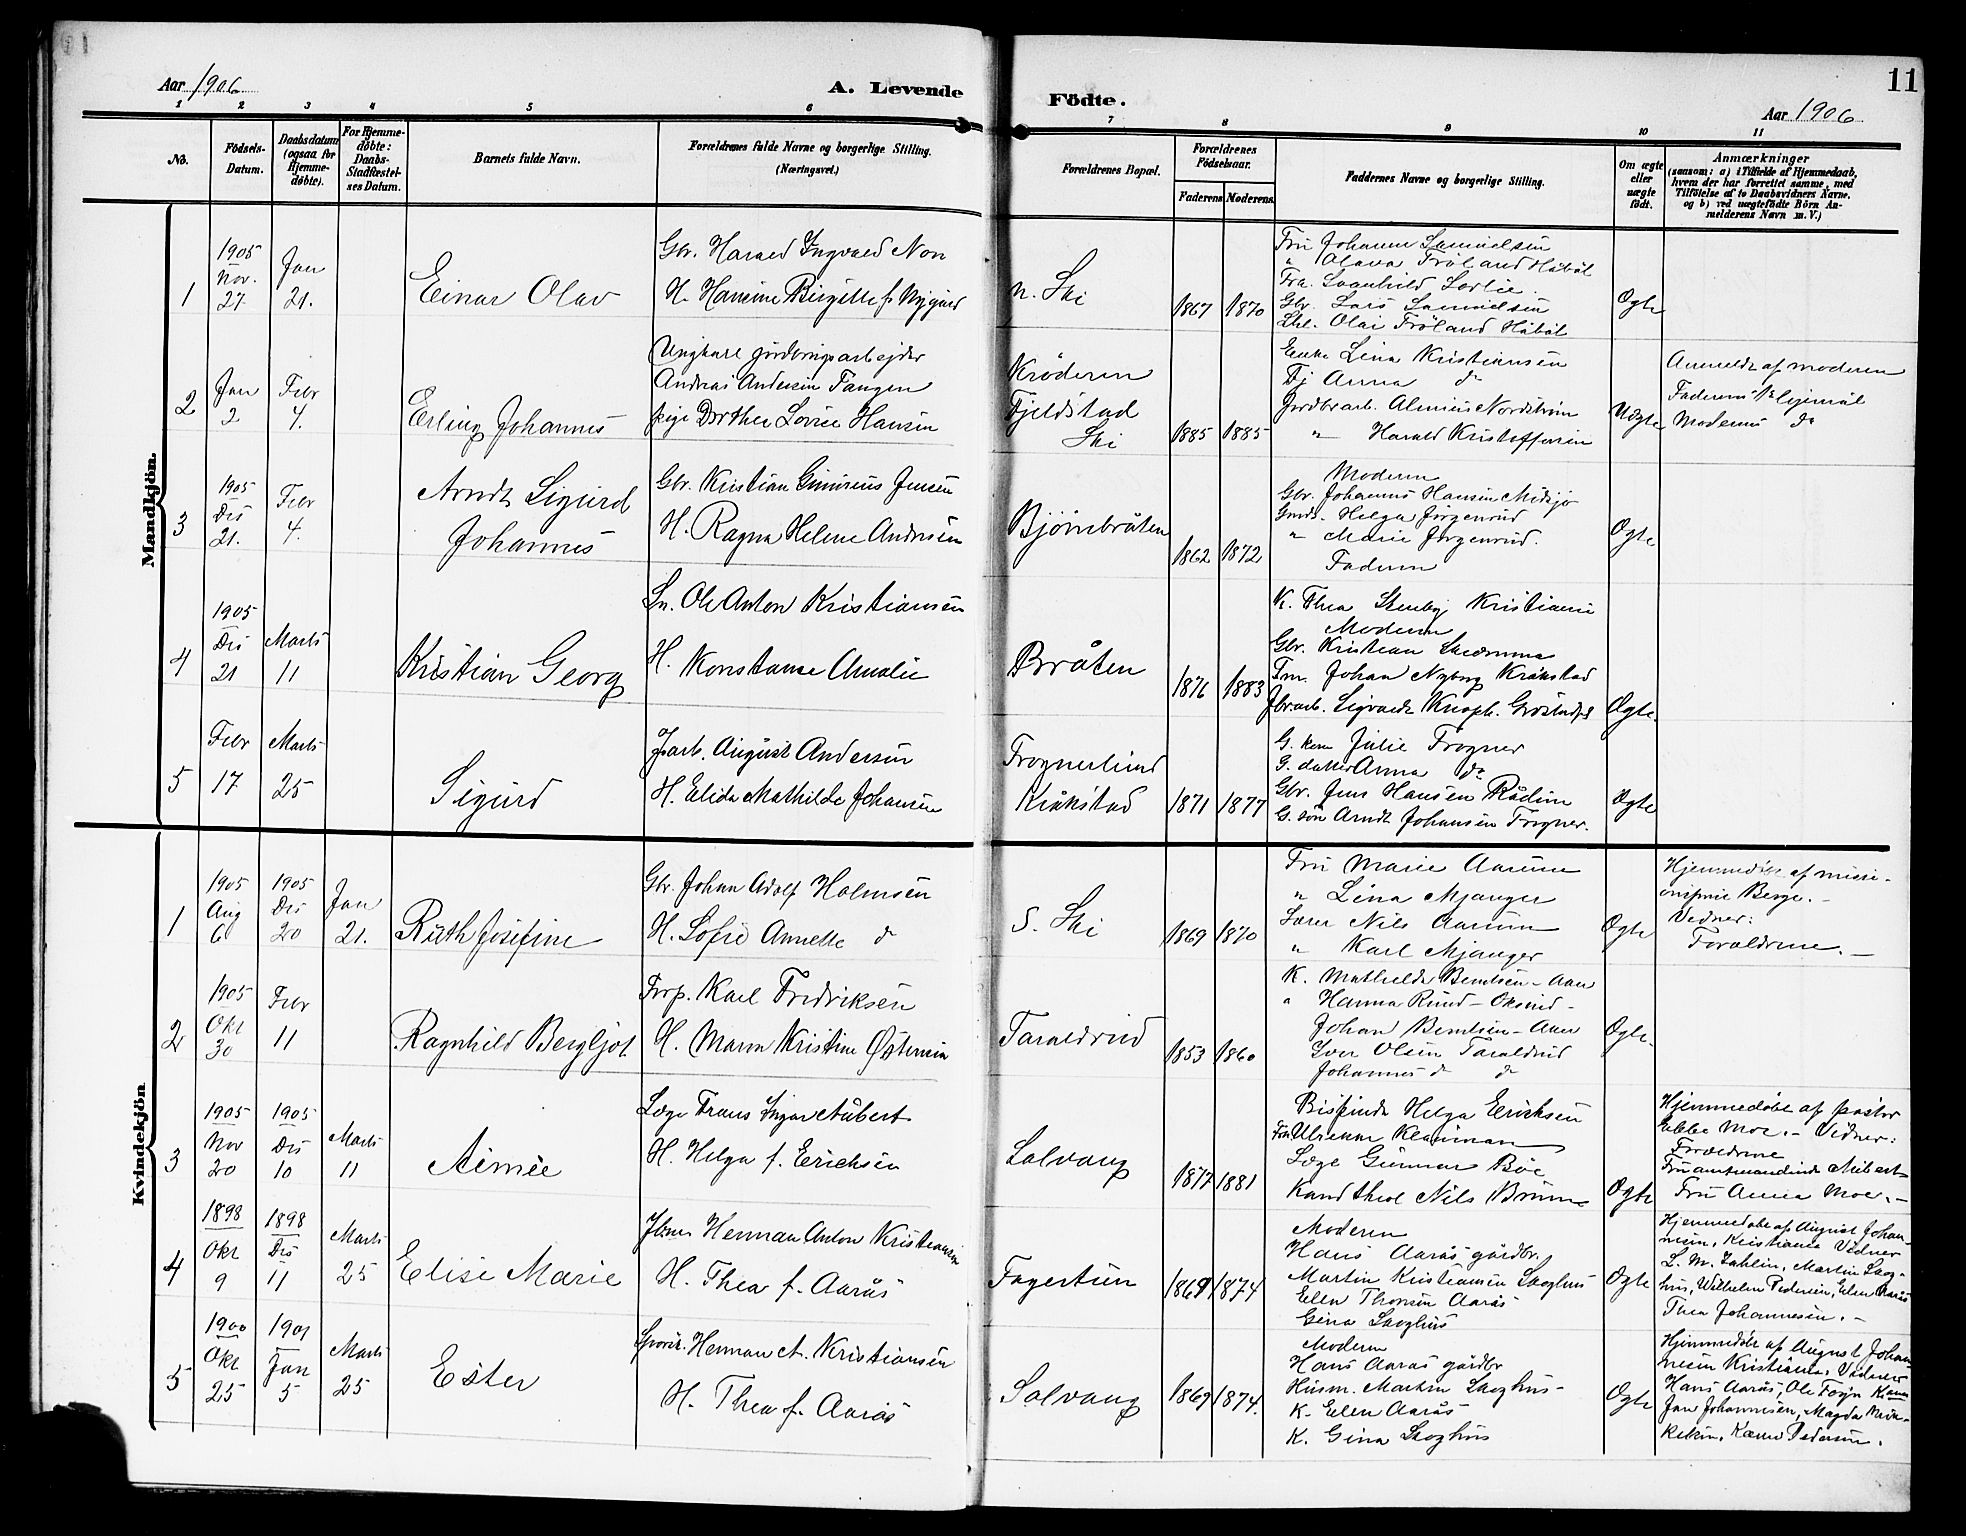 11
Aar 1906
A. Levende
Födte.
Aar 1906
1 2 3 4 5 6 7 8 9 10 11
No.
Födsels-Datum.
Daabsdatum (ogsaa for Hjemmedöbte).
For Hjemmedöbte: Daabs-Stadfæstelses Datum.
Barnets fulde Navn.
Forældrenes fulde Navne og borgerlige Stilling.
(Næringsvei.)
Forældrenes Bopæl.
Forældrenes Födselsaar.
Faderens Moderens
Faddernes Navne og borgerlige Stilling.
Om ægte eller uægte födt.
Anmærkninger
(saasom: a) i Tilfælde af Hjemmedaab,
hvem der har forrettet samme, med
Tilföielse af to Daabsvidners Navne,
og b) ved uægtefödte Börn Anmelderens Navn m. V.)
Mandkjön.
1
1905
Nov.
27
Jan
21.
Einar Olav
Gbr. Harald Ingvald Non
H. Hanine Birgitte f. Nygård
n. Ski
1867 1870
Fru Johanne Samuelsen
" Olava Fröland Håböl
Fru. Svanhild Sørlie.
Gbr. Lars Samuelsen
Olai Fröland Håböl
Ogte
2
Jan
2
Febr
4.
Erling Johannes
Ungkarl jordbrugsarbejder
Andreas Andersen Tangen
pige Dorthea Lovise Hansen
Kröderen
Fjeldstad
Ski
1885 1885
Enke Lina Kristiansen
Tj Anna do
Jordbrarb. Nordström
" Harald Kristoffersen
Uægte
Anmeldt af moderen
Faderens 1ste lejermål
Moderens do
3
1905
Des
21.
Febr
4.
Arndt Sigurd
Johannes
Gbr. Kristian Jensen
H. Ragna Helene Andersen
Bjørnebråten
1862 1872
Moderen
Gbr. Johannes Hansen Midsjø
Helga Jørgenrud
" Marie Jørgenrud.
Faderen
Ogte
4
1905
Des
21
Marts
11
Kristian Georg
Sn. Ole Anton Kristiansen
H. Konstanse Amalie
Bråten
1876 1883
K. Thea Stenby Kristiania
Moderen
Gbr. Kristian
Johan Nyborg Kråkstad
Jbrarb. Sigvardt
Ogte.
5
Febr
17
Marts
25
Sigurd
Jarb. August Andersen
H. Elida Mathilde Johansen
Frognerlund
Kråkstad
1871 1877
G. kone Julie Frogner
G. datter Anna do
Gbr. Jens Hansen Rådim
G. søn Arndt Johansen Frogner.
Ogte
Kvindekjön
1
1905
Aug
6
1905
Des
20
Jan
21.
Ruth Josefine
Gbr. Johan Adolf Holmsen
H. Sofie Annette do
S. Ski
1869 1870
Fru Marie Aarum
" Lina Mjanger
Lærer Nils Aarum
" Karl Mjanger
Ogte
Hjemmedøbt af missi-
Berge.
Vidner:
Forældrene.
2
1905
Okt
30
Febr
11
Ragnhild Bergljot
Forp. Karl Fredriksen
H. Maren Kristine Østensen
Taraldrud
1853 1860
K. Mathilde Berntsen - Aaer
" Hanna Rund - Oksrud -
Johan Berntsen - Aaer
Iver Olsen Taraldrud
Johannes do do
Ogte.
3
1905
Nov
20
1905
Des
10
Marts
11
Aimée
Læge Frans Ingar Aubert
H. Helga f. Erichsen
Solvang
1877 1881
Bispinde Helga Erichsen
Fru Ulrikke
Læge Gunnar Bøe
Kand theol Nils Brun
Ogte
Hjemmedøbt af pastor
Ebbe Moe. - Vidner:
Forældrene
Fru amtmandinde Aubert
Fru Anna Moe. -
4
1898
Okt
9
1898
Des
11
Marts
25
Elise Marie
Herman Anton Kristiansen
H. Thea f. Aarås
Fagertun
1869 1874
Moderen
Hans Aarås gårdbr.
Martin Kristiansen Skoghus
Ellen Thorsen Aarås
Gina Skoghus
Ogte
Hjemmedøbt af August Johan-
nesen, Kristiania Vidner
L. M. Sahlin, Martin Skog-
hus, Wilhelm Pedersen, Ellen Aarås
Thea Johannesen. -
5
1900
Okt
25
1901
Jan
5
Marts
25
Ester
Herman A. Kristiansen
H. Thea f. Aarås
Solvang
1869 1874.
Moderen
Hans Aarås gårdbr
Husm. Martin Skoghus -
K. Ellen Aarås
K. Gina Skoghus
Ogte
Hjemmedøbt af August Johan-
nesen Kristiania. Vidner
Hans Aarås, Ole
Jan Johannesen, Magda
Karen Pedersen.